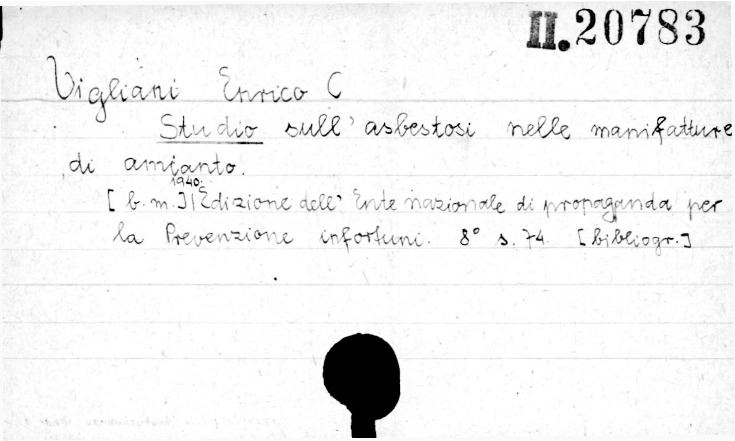 II. 20783
Vigliani Enrico C
Studio sull' asbestosi nelle manifatture
di amianto.
1940.
[b. m.] Edizione dell' Ente nazionale di propaganda per
la Prevenzione infortuni. 8° s. 74. [bibliogr.]